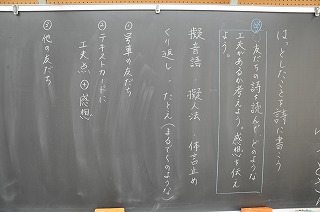 はっとしたことを詩に書こう
め 友だちの詩を読んで、どのような
工夫があるか考えよう。感想を伝え
よう。
擬音語 擬人法 体言止め
くり返し たとえ(まるで〜のような)
① 号車の友だち
テキストカードに
工夫点 感想
② 他の友だち